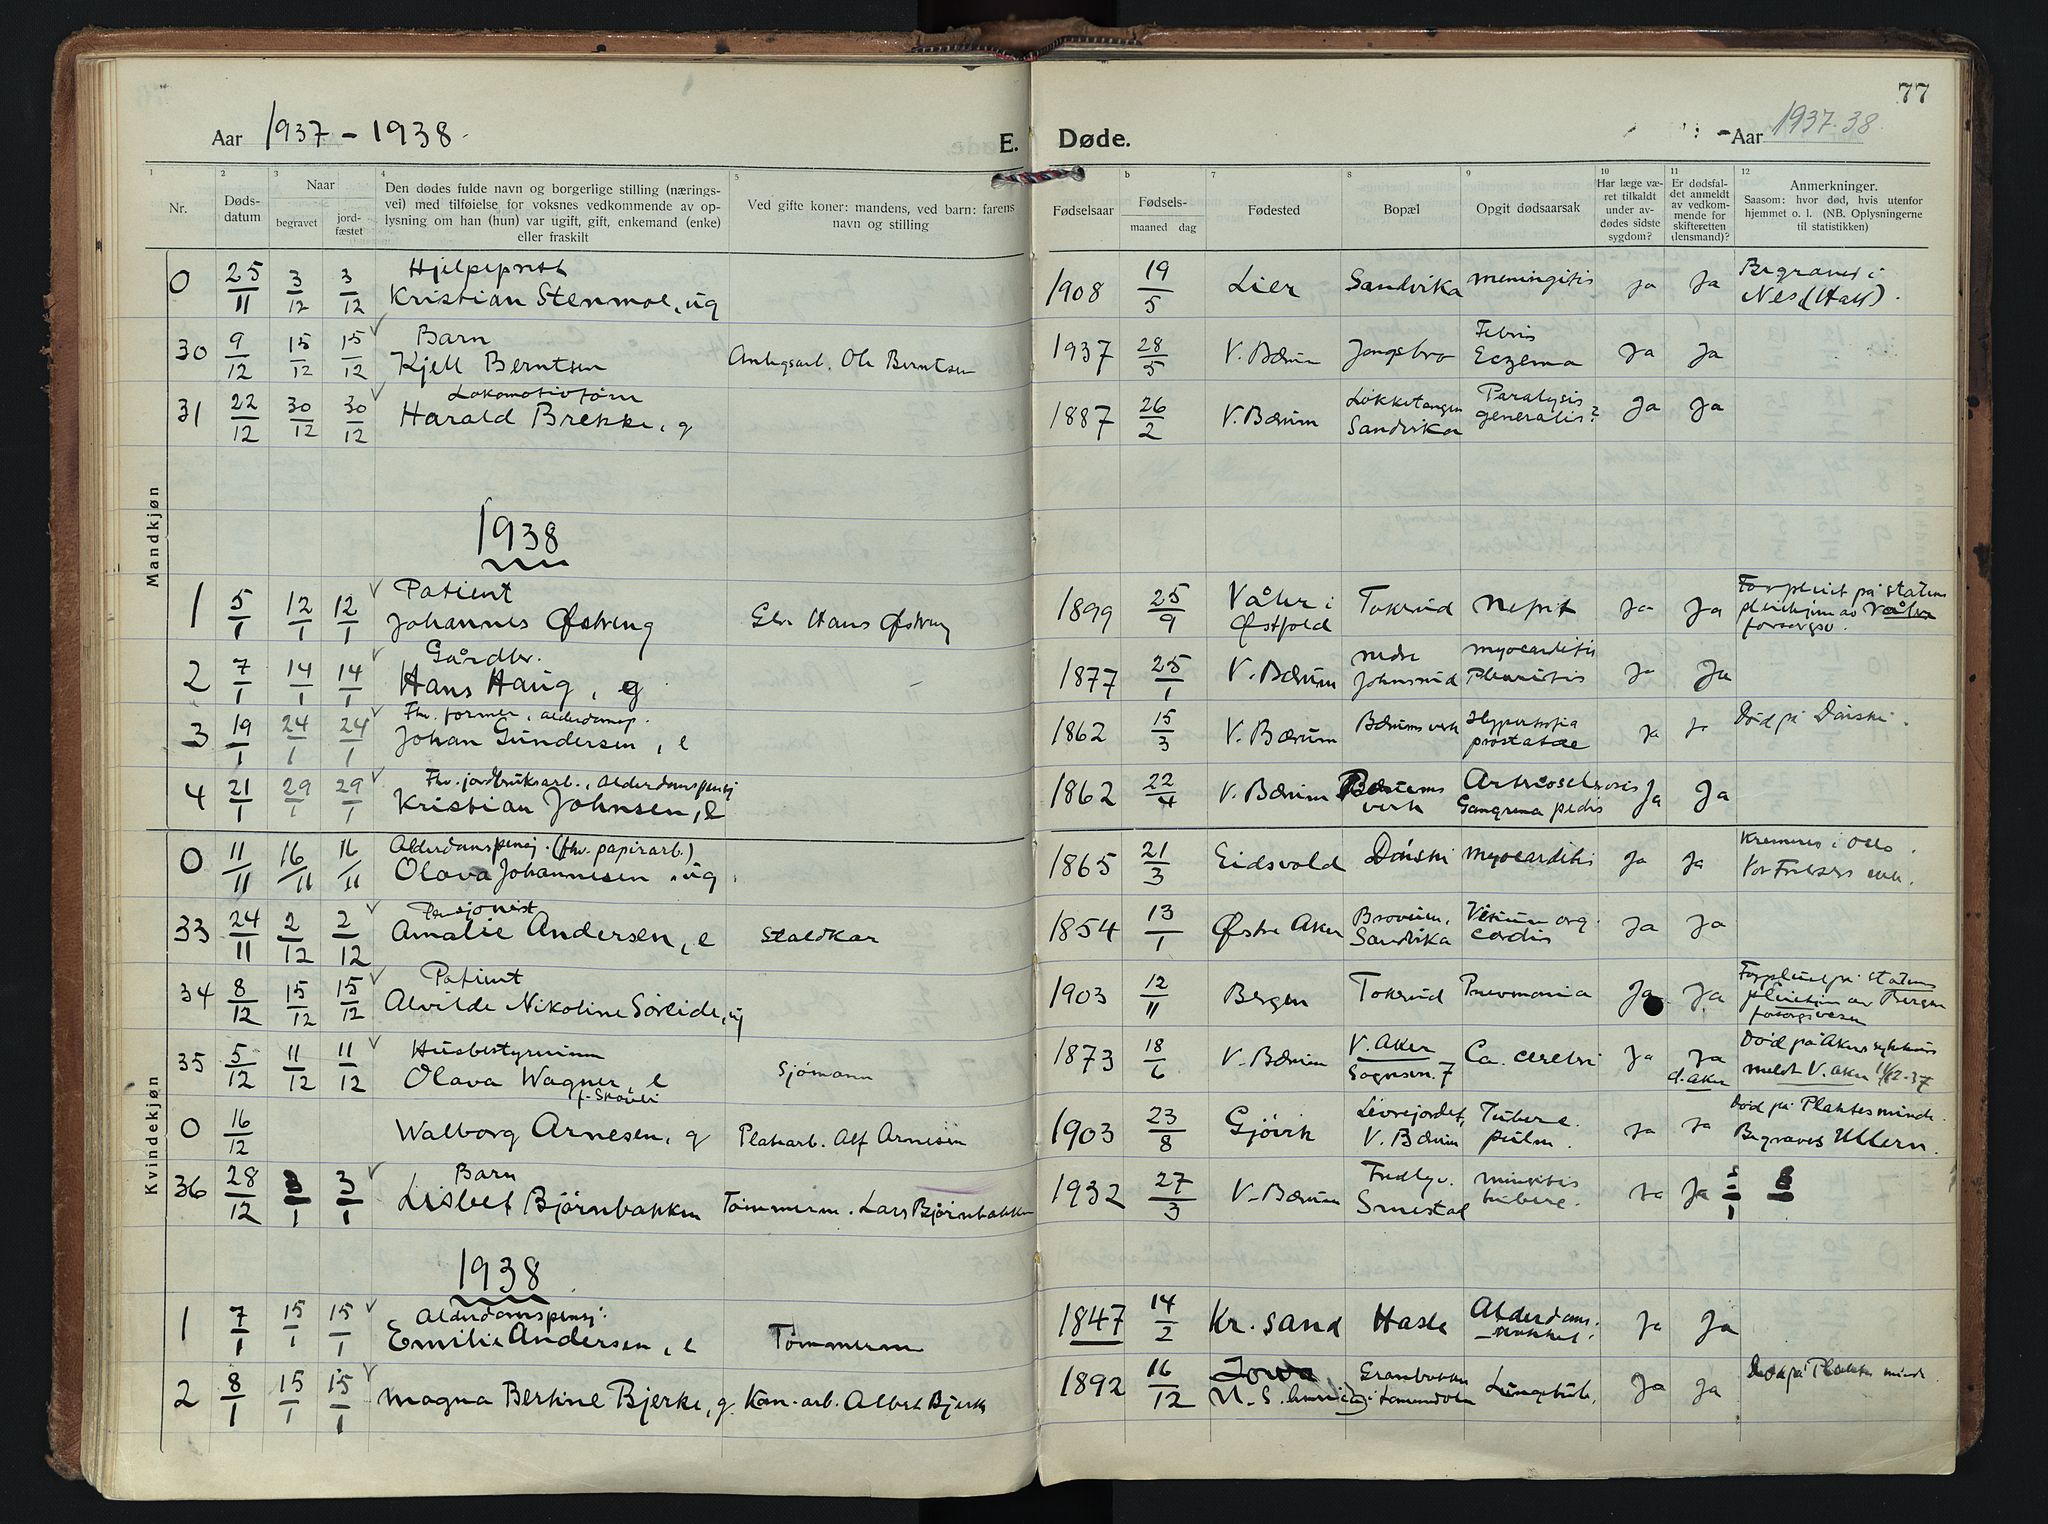 77
Aar 1937 - 1938.
E. Døde.
Aar 1937-38.
1 Nr.
2 Døds-datum
3 Naar begravet jord-fæstet
4 Den dødes fulde navn og borgerlige stilling (nærings-
vei) med tilføielse for voksnes vedkommende av op-
lysning om han (hun) var ugift, gift, enkemand (enke)
eller fraskilt
5 Ved gifte koner: mandens, ved barn: farens
navn og stilling
Fødselsaar
6 Fødsels-
maaned dag
7 Fødested
8 Bopæl
9 Opgit dødsaarsak
10 Har læge væ-
ret tilkaldt
under av-
dødes sidste
sygdom?
11 Er dødsfal-
det anmeldt
av vedkom-
mende for
skifteretten
(lensmand)?
12 Anmerkninger.
Saasom: hvor død, hvis utenfor
hjemmet o. l. (NB. Oplysningerne
til statistikken)
Mandkjøn
0 25/11 3/12 3/12 Hjelpeprest
Kristian Stenmoe, ug 1908 19/5 Lier Sandvika meningitis ja Ja Begraves i
Nes (Hall).
30 9/12 15/12 15/12 Barn
Kjell Berntsen Anlegsarb. Ole Berntsen 1937 28/5 V. Bærum Jongsbro Febris
Eczema Ja Ja
31 22/12 30/12 30/12 Lokomotivfører
Harald Brekke, g 1887 26/2 V. Bærum Løkketangen
Sandvika Paralysis
generalis? Ja Ja
1938
1 5/1 12/1 12/1 Patient
Johannes Østreng Elv. Hans Østreng 1899 25/9 Våler i
Østfold Tokerud Nefrit Ja Ja Forpleiet på statens
pleiehjem av Våler
forsorgsv.
2 7/1 14/1 14/1 Gårdbr.
Hans Haug, g 1877 25/1 V. Bærum nedre
Johnsrud myocarditis
Pleuritis Ja Ja
3 19/1 24/1 24/1 Fhv. former, alderdomsp.
Johan Gundersen, e 1862 15/3 V. Bærum Bærums verk Hypertrofia
prostatae Ja Ja Død på Dønski.
4 21/1 29/1 29/1 Fhv. jordbruksarb., Alderdomspensj
Kristian Johnsen, e 1862 22/4 V. Bærum Bærums
verk Arteriosclerosis
Gangrena pedis Ja Ja
Kvindekjøn
0 11/11 16/11 16/11 Alderdomspensj. (fhv. papirarb.)
Olava Johannesen, ug. 1865 21/3 Eidsvold Dønski Myocarditis Ja Ja Kremeres i Oslo.
Vor Frelsers
33 24/11 2/12 2/12 Pensjonist
Amalie Andersen, e Staldkar 1854 13/1 Østre Aker Broveien,
Sandvika Vitium org.
cordis Ja Ja
34 8/12 15/12 15/12 Patient
Alvilde Nikoline Søreide, ug 1903 12/11 Bergen Tokerud Pneumonia Ja Ja Forpleiet på statens
pleiehjem av Bergen
forsorgsvesen
35 5/12 11/12 11/12 Husbestyrerinne
Olava Wagner, e
f. Skauli Sjømann 1873 18/6 V. Bærum V. Aker
Sognsvn. 7 Ca. cerebri Ja Ja
d. Aker Død på Akers sykehus
meldt V. Aker 11/12-37
0 16/12 Walborg Arnesen, g Platearb. Alf Arnesen 1903 23/8 Gjøvik Levrejordet,
V. Bærum Tuberc.
pulm. Ja Ja Død på Plahtes minde.
Begraves Ullern.
36 28/12 3/1 3/1 Barn
Lisbet Bjørnbakken Tømmerm. Lars Bjørnbakken 1932 27/3 V. Bærum
Smestad Meningitis
tuberc. Ja Ja
1938
1 7/1 15/1 15/1 Alderdomspensj.
Emilie Andersen, e Tømmerm 1847 14/2 Kr. sand Hasle Alderdoms-
svakhet. Ja Ja
2 8/1 15/1 15/1 Magna Bertine Bjerke, g. Kom. arb. Albert Bjerke 1892 16/12 Iowa
U. S. America Granbakken
i Lommedalen Lungetub. Ja Ja Død på Plahtes minde.